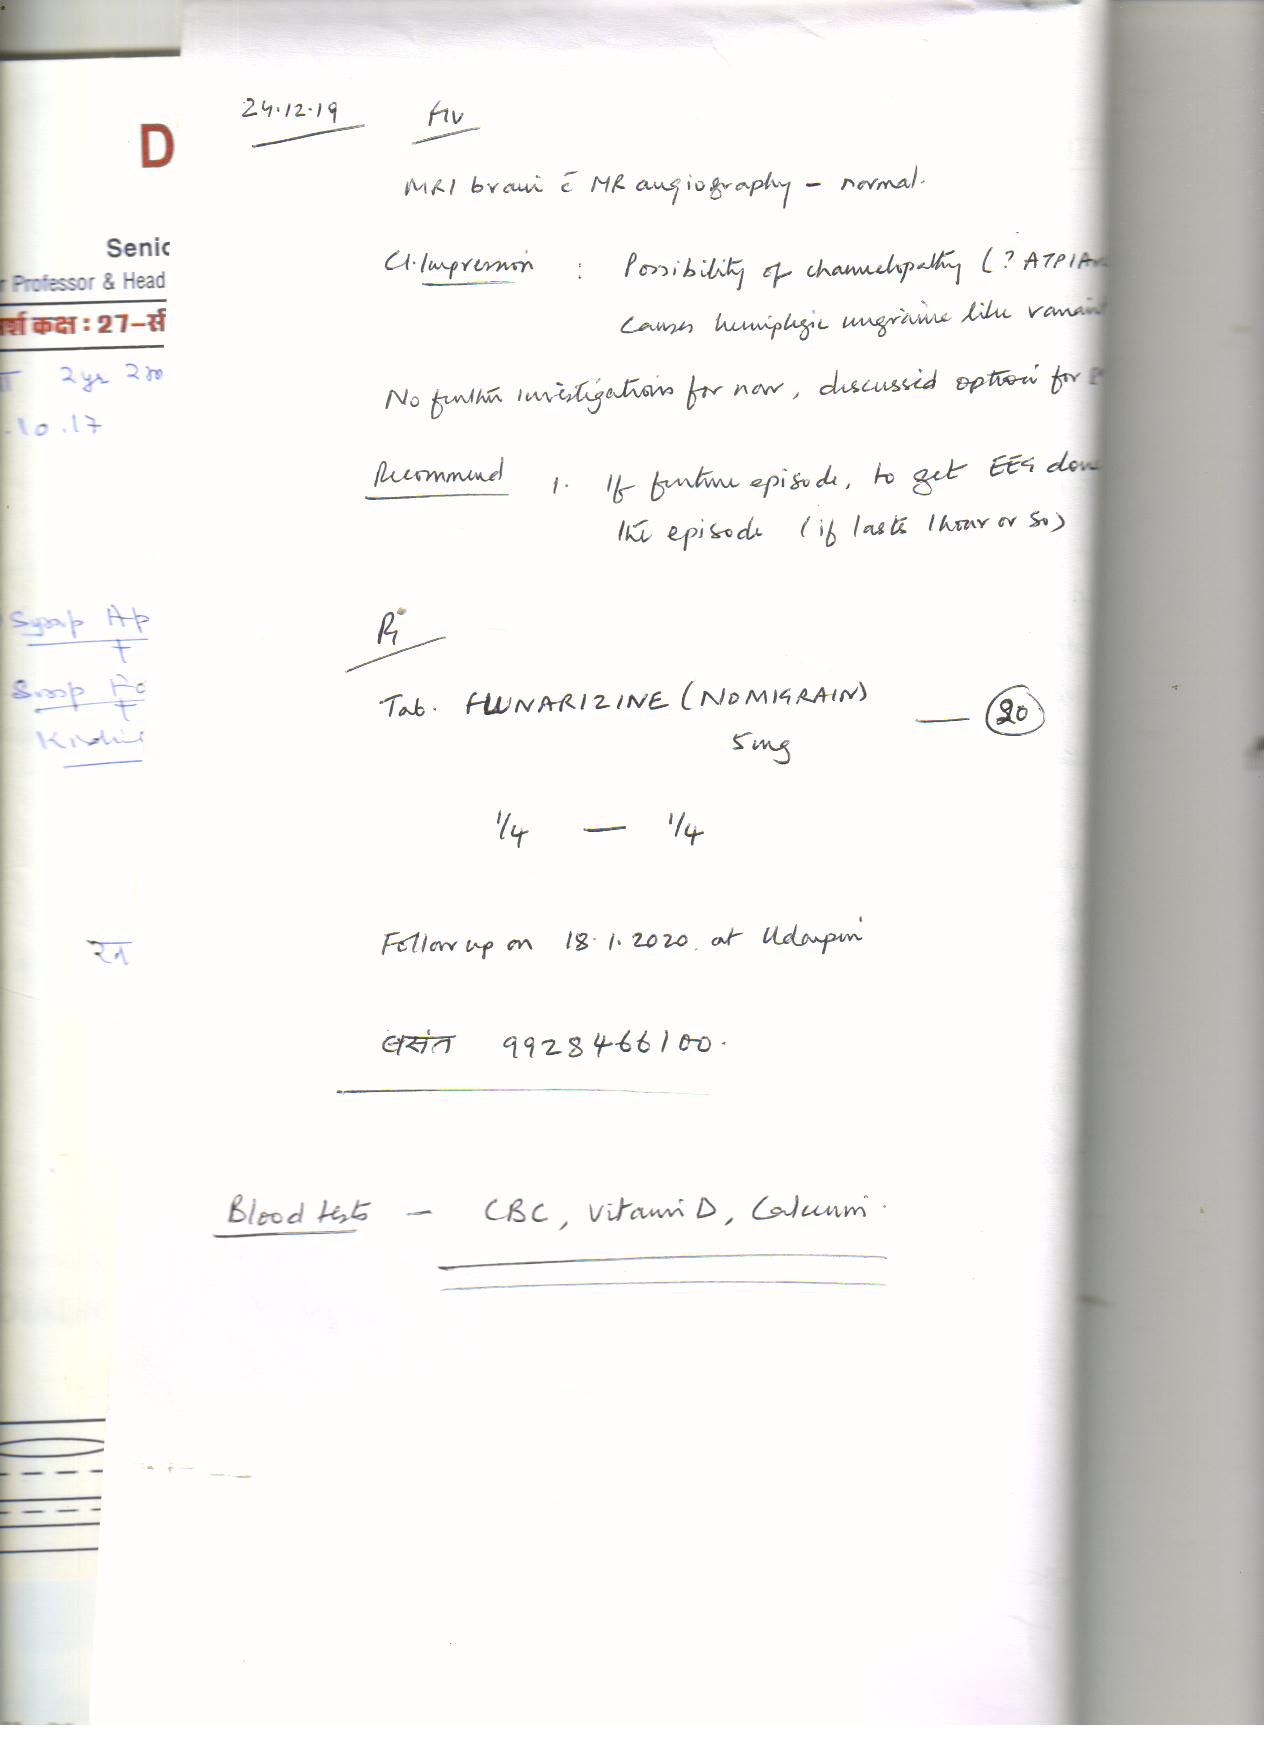 24.12.19 F/U
MRI brain c̄ MR angiography – normal.
Cl. Impression : Possibility of channelopathy ( ? ATP1A
causes hemiplegic migraine like varian
No further investigations for now, discussed option for
Recommend 1. If further episode, to get EEG done
the episode (if lasts 1 hour or so)
Rx
Tab. FLUNARIZINE (NOMIGRAIN) —
5mg
1/4 — 1/4
Follow up on 18.1.2020. at Udaipur
बसंत 9928466100.
Blood tests – CBC, Vitamin D, Calcium.
D
Senic
r Professor & Head
र्श कक्ष : 27–र्स
2 yr
.10.17
Syrup Ap
Syrup
रन